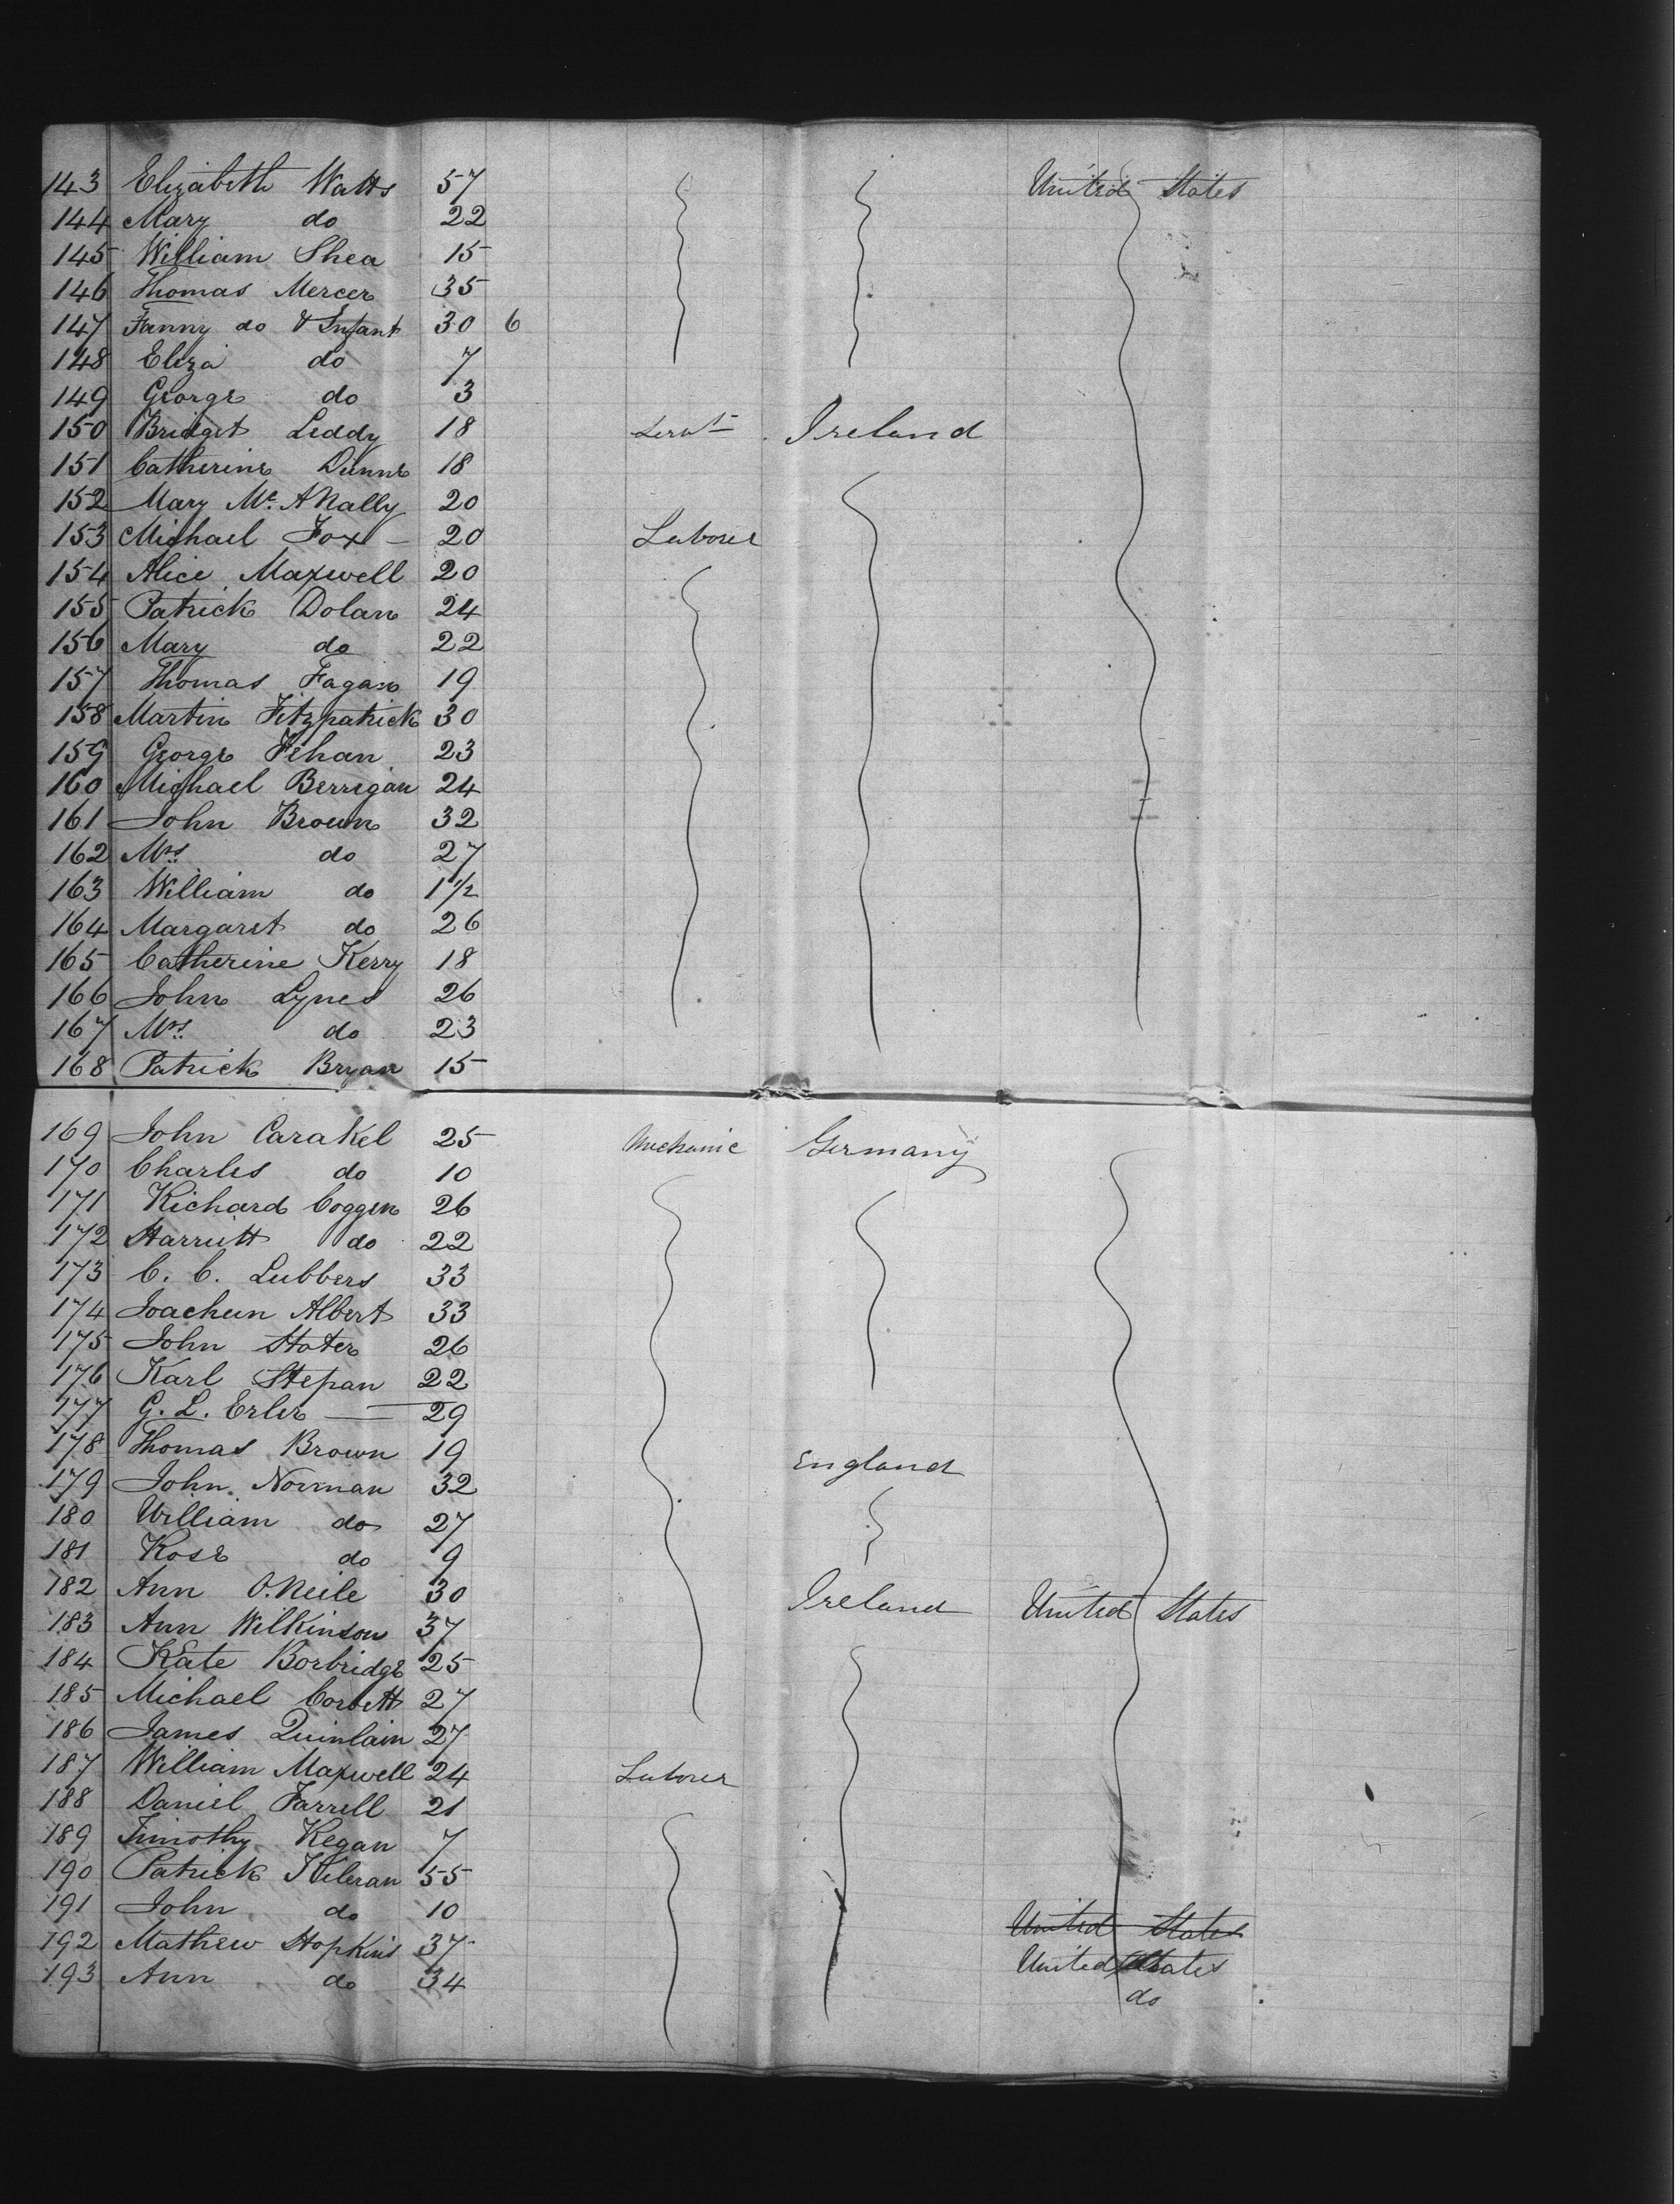 143 Elizabeth Watts 57 United States
144 Mary do 22
145 William Shea 15
146 Thomas Mercer 35
147 Fanny do & Infant 30 6
148 Eliza do 7
149 George do 3
150 Bridget Leddy 18 Servt Ireland
151 Catherine Dunne 18
152 Mary Mc. ANally 20
153 Michael Fox - 20 Laborer
154 Alice Maxwell 20
155 Patrick Dolan 24
156 Mary do 22
157 Thomas Fagan 19
158 Martin Fitzpatrick 30
159 George Fehan 23
160 Michael Berrigan 24
161 John Brown 32
162 Mrs. do 27
163 William do 1 1/2
164 Margaret do 26
165 Catherine Kerry 18
166 John Lynes 26
167 Mrs. do 23
168 Patrick Bryan 15
169 John Carakel 25 Mechanic Germany
170 Charles do 10
171 Richard Coggen 26
172 Harriett do 22
173 C. C. Lubbers 33
174 Joachun Albert 33
175 John Stater 26
176 Karl Stepan 22
177 G. L. Erler — 29
178 Thomas Brown 19 England
179 John Norman 32
180 William do 27
181 Rose do 9
182 Ann O.Neile 30 Ireland United States
183 Ann Wilkinson 37
184 Kate Borbridge 25
185 Michael Corbett 27
186 James Quinlain 27
187 William Maxwell 24 Laborer
188 Daniel Farrell 21
189 Timothy Kegan 7
190 Patrick Kileran 55
191 John do 10 United States
192 Mathew Hopkins 37 United States
193 Ann do 34 do